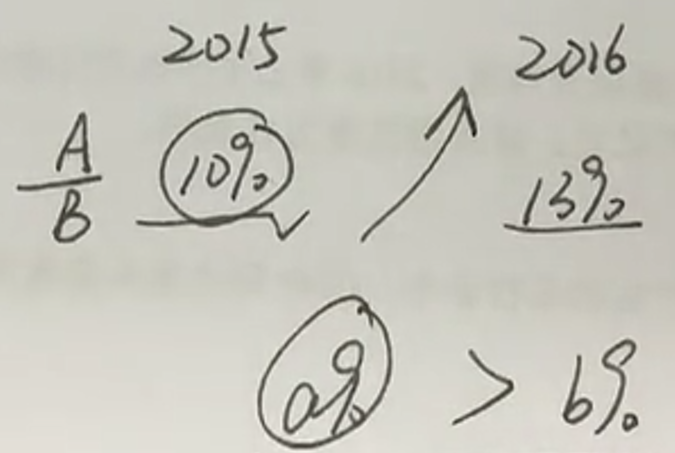 2015 2016
A/B 10% 13%
a% > b%